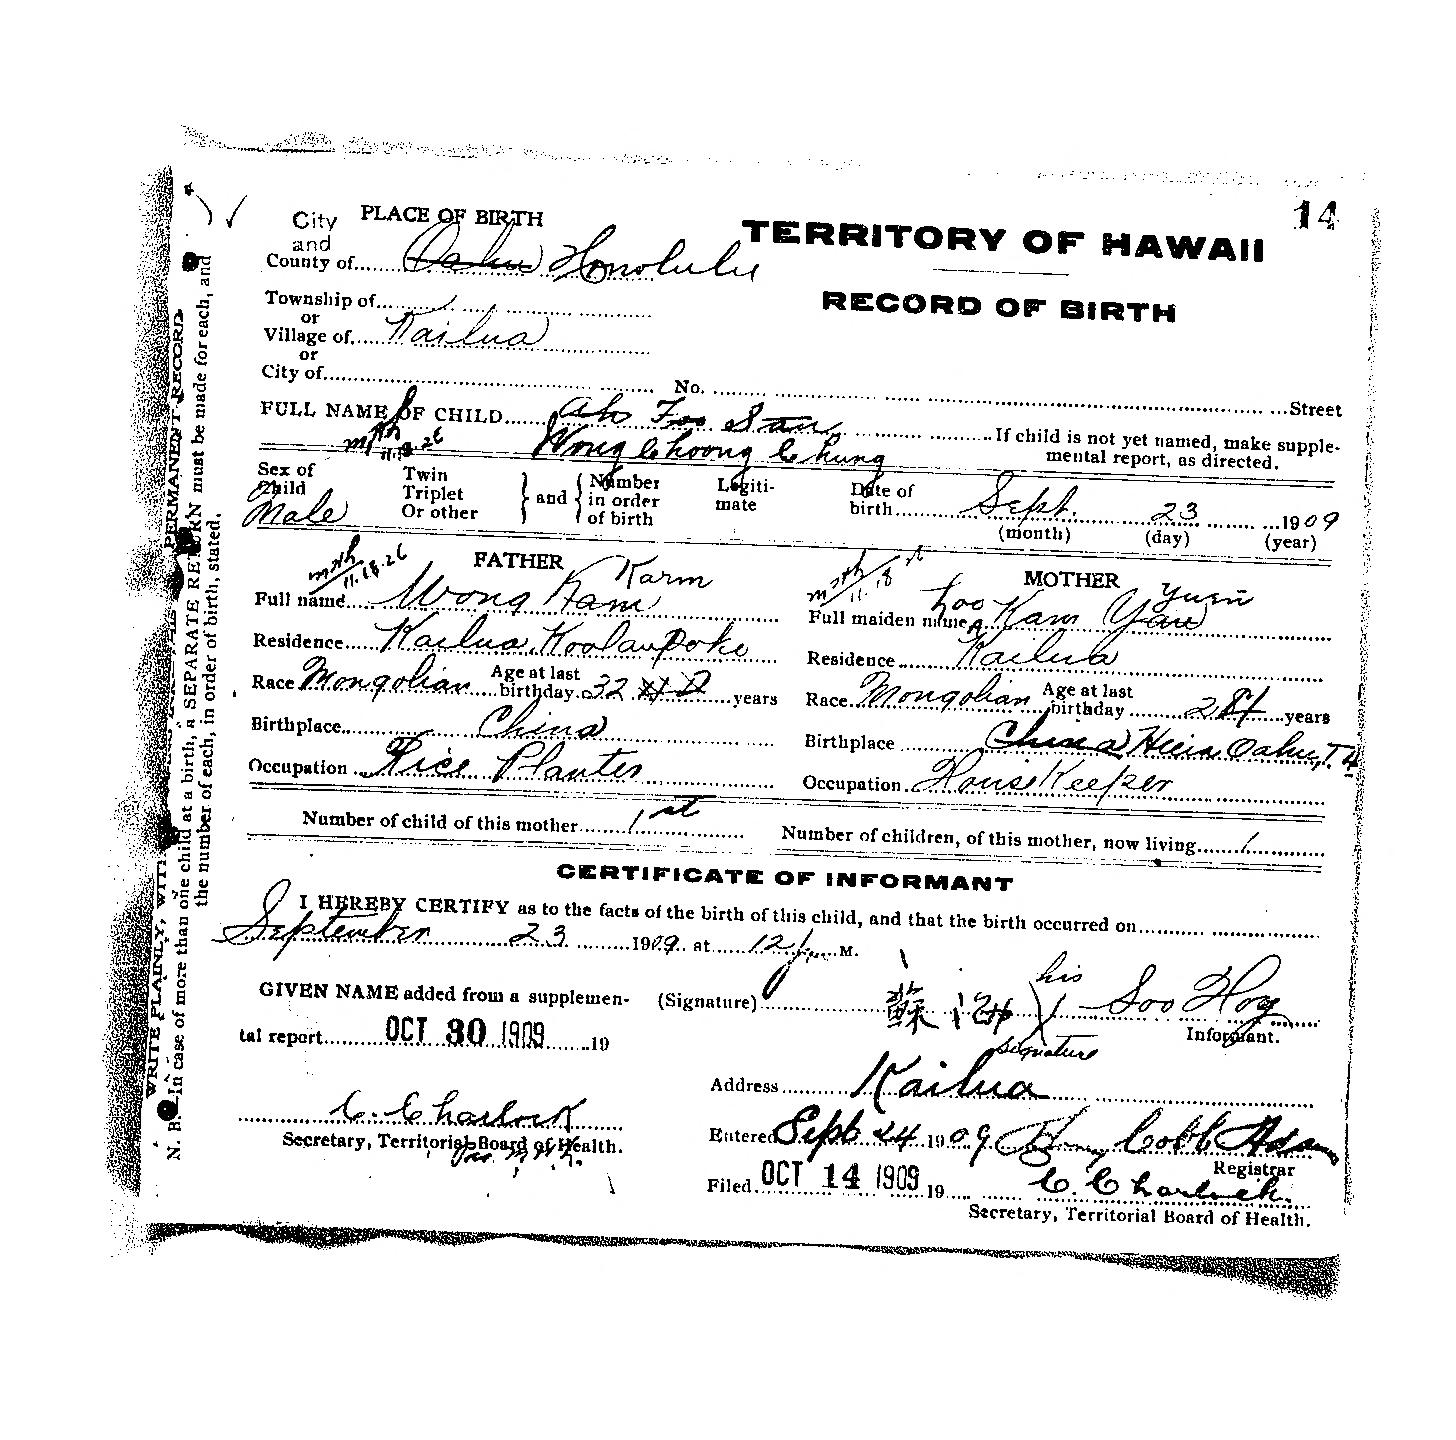 14
City PLACE OF BIRTH
and
County of Oahu Honolulu
TERRITORY OF HAWAII
RECORD OF BIRTH
Township of
or
Village of Kailua
or
City of No. Street
FULL NAME OF CHILD Ah Foo San
Wong Choong Chung
If child is not yet named, make supple-
mental report, as directed.
11.18.26
Sex of Child Male
Twin
Triplet
Or other
and
Number
in order
of birth
Legiti-
mate
Date of
birth Sept. 23 1909
(month) (day) (year)
11.18.26
FATHER Karm
Full name Wong Kam
Residence Kailua, Koolaupoko
Race Mongolian Age at last
birthday 32 years
Birthplace China
Occupation Rice Planter
11.18
MOTHER
Yuen
Full maiden name Loo Kam Yau
Residence Kailua
Race Mongolian Age at last
birthday years
Birthplace China Heeia Oahu, T.H
Occupation House Keeper
Number of child of this mother 1st
Number of children, of this mother, now living 1
CERTIFICATE OF INFORMANT
I HEREBY CERTIFY as to the facts of the birth of this child, and that the birth occurred on
September 23 1909 at 12 M.
GIVEN NAME added from a supplemen-
tal report OCT 30 1909 19
C. Charlock
Secretary, Territorial Board of Health.
(Signature) 蘇 his Soo Hoy
signature
Informant.
Address Kailua
Entered Sept 24 1909 Cobb Adams
Registrar
Filed OCT 14 1909 19 C. Charlock
Secretary, Territorial Board of Health.
WRITE PLAINLY, WITH PERMANENT RECORD
N. B. In case of more than one child at a birth, a SEPARATE RETURN must be made for each, and
the number of each, in order of birth, stated.